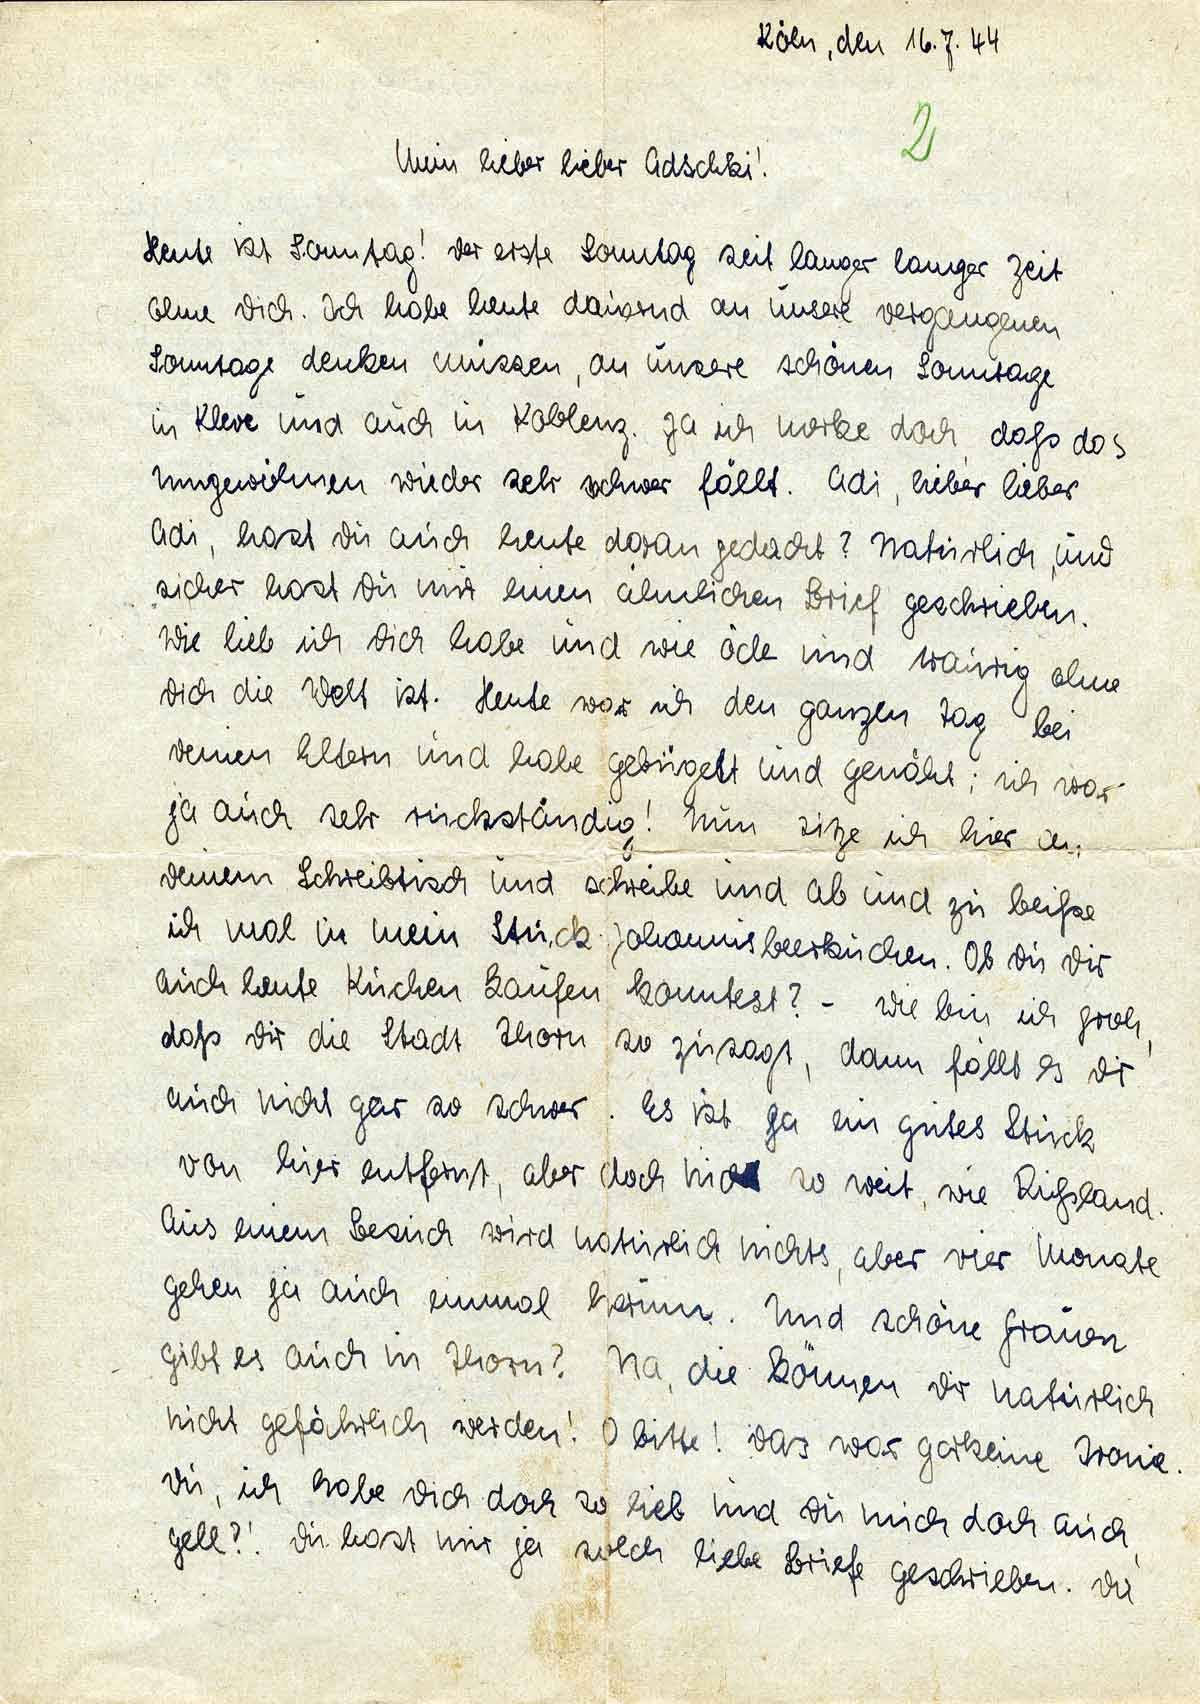 Köln, den 16.7.44
2
Mein lieber lieber Adschki!
Heute ist Sonntag! Der erste Sonntag seit langer langer Zeit
ohne Dich. Ich habe heute dauernd an unsere vergangenen
Sonntage denken müssen, an unsere schönen Sonntage
in Kleve und auch in Koblenz. Ja ich merke doch, daß das
Umgewöhnen wieder sehr schwer fällt. Adi, lieber lieber
Adi, hast Du auch heute daran gedacht? Natürlich, und
sicher hast Du mir einen ähnlichen Brief geschrieben.
Wie lieb ich Dich habe und wie öde und traurig ohne
Dich die Welt ist. Heute war ich den ganzen Tag bei
Deinen Eltern und habe gebügelt und genäht; ich war
ja auch sehr rückständig! Nun sitze ich hier an
Deinem Schreibtisch und schreibe und ab und zu beiße
ich mal in mein Stück Johannisbeerkuchen. Ob Du Dir
auch heute Kuchen kaufen konntest? – Wie bin ich froh,
daß Dir die Stadt Thorn so zusagt, dann fällt es Dir
auch nicht gar so schwer. Es ist ja ein gutes Stück
von hier entfernt, aber doch nicht so weit, wie Rußland.
Aus einem Besuch wird natürlich nichts, aber vier Monate
gehen ja auch einmal herum. Und schöne Frauen
gibt es auch in Thorn? Na, die können Dir natürlich
nicht gefährlich werden! O bitte! Das war garkeine Ironie.
Du, ich habe Dich doch so lieb und Du mich doch auch,
gell?! Du hast mir ja solch liebe Briefe geschrieben. Du